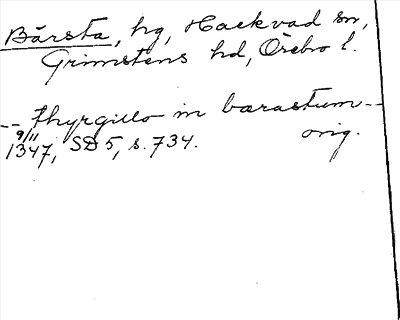 Bärsta, hg, Hackvad sn,
Grimstens hd, Örebro l.
-- thyrgillo in bærastum --
9/11 orig.
1347, SD 5, s. 734.